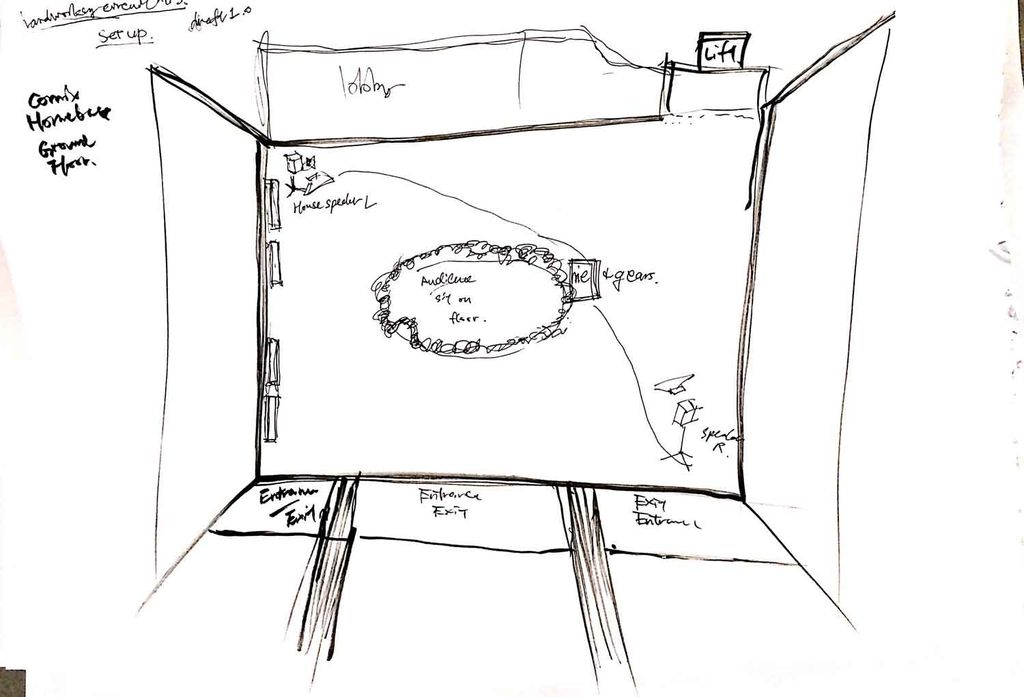 set up.
draft 1.0
Comix
Homebase
Ground
Floor.
lobby
Lift
House speaker L
Audience
sit on
floor.
me
+ gears.
Speaker
R.
Entrance
Exit
Entrance
Exit
Exit
Entrance